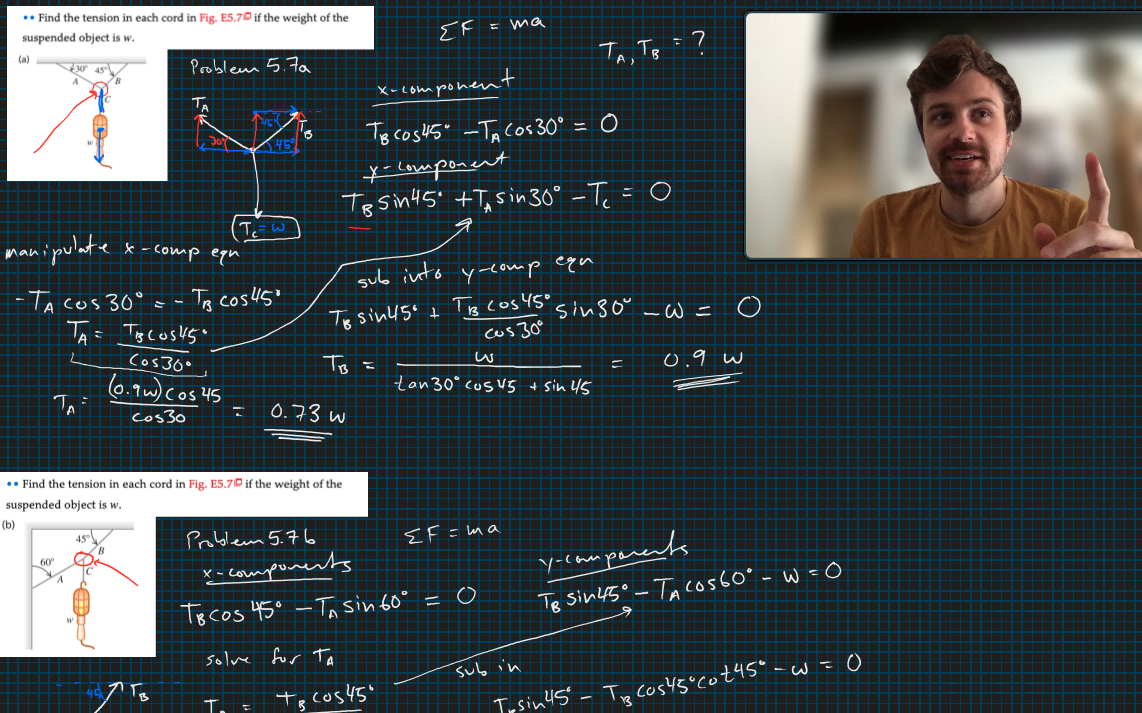 •• Find the tension in each cord in Fig. E5.7 if the weight of the
suspended object is w.
(a)
30° 45°
A B
C
w
Problem 5.7a
T_A
45°
30° 45°
T_B
T_C = w
ΣF = ma
T_A, T_B = ?
x-component
T_B cos45° - T_A cos30° = 0
y-component
T_B sin45° + T_A sin30° - T_C = 0
manipulate x-comp eqn
-T_A cos30° = -T_B cos45°
T_A = T_B cos45° / cos30°
T_A = (0.9w) cos45 / cos30 = 0.73 w
sub into y-comp eqn
T_B sin45° + T_B cos45° / cos30° sin30° - w = 0
T_B = w / tan30° cos45 + sin45 = 0.9 w
•• Find the tension in each cord in Fig. E5.7 if the weight of the
suspended object is w.
(b)
45°
B
60°
A C
w
Problem 5.7b
ΣF = ma
x-components
T_B cos45° - T_A sin60° = 0
y-components
T_B sin45° - T_A cos60° - w = 0
solve for T_A
sub in
T_B cos45°
T_B sin45° - T_B cos45° cot45° - w = 0
45
T_B